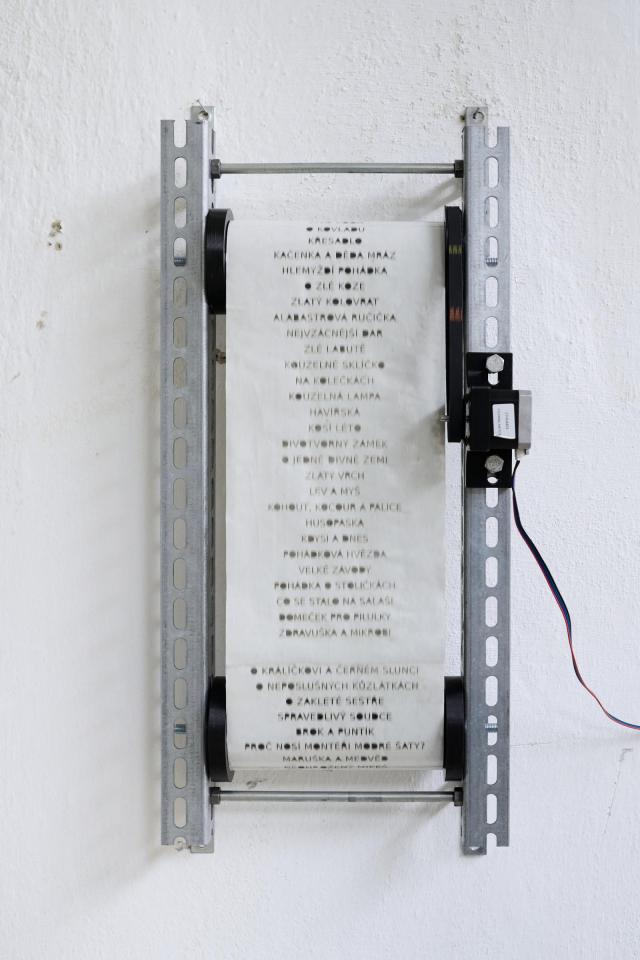 O KOVLADU
KŘESADLO
KAČENKA A DĚDA MRÁZ
HLEMÝŽDÍ POHÁDKA
O ZLÉ KOZE
ZLATÝ KOLOVRAT
ALABASTROVÁ RUČIČKA
NEJVZÁCNĚJŠÍ DAR
ZLÉ LABUTĚ
KOUZELNÉ SKLÍČKO
NA KOLEČKÁCH
KOUZELNÁ LAMPA
HAVÍŘSKÁ
KOSÍ LÉTO
DIVOTVORNÝ ZÁMEK
O JEDNÉ DIVNÉ ZEMI
ZLATÝ VRCH
LEV A MYŠ
KOHOUT, KOCOUR A PALICE
HUSOPASKA
KDYSI A DNES
POHÁDKOVÁ HVĚZDA
VELKÉ ZÁVODY
POHÁDKA O STOLIČKÁCH
CO SE STALO NA SALAŠI
DOMEČEK PRO PILULKY
ZDRAVUŠKA A MIKROBI
O KRÁLÍČKOVI A ČERNÉM SLUNCI
O NEPOSLUŠNÝCH KŮZLÁTKÁCH
O ZAKLETÉ SESTŘE
SPRAVEDLIVÝ SOUDCE
BROK A PUNTÍK
PROČ NOSÍ MONTÉŘI MODRÉ ŠATY?
MARUŠKA A MEDVĚD